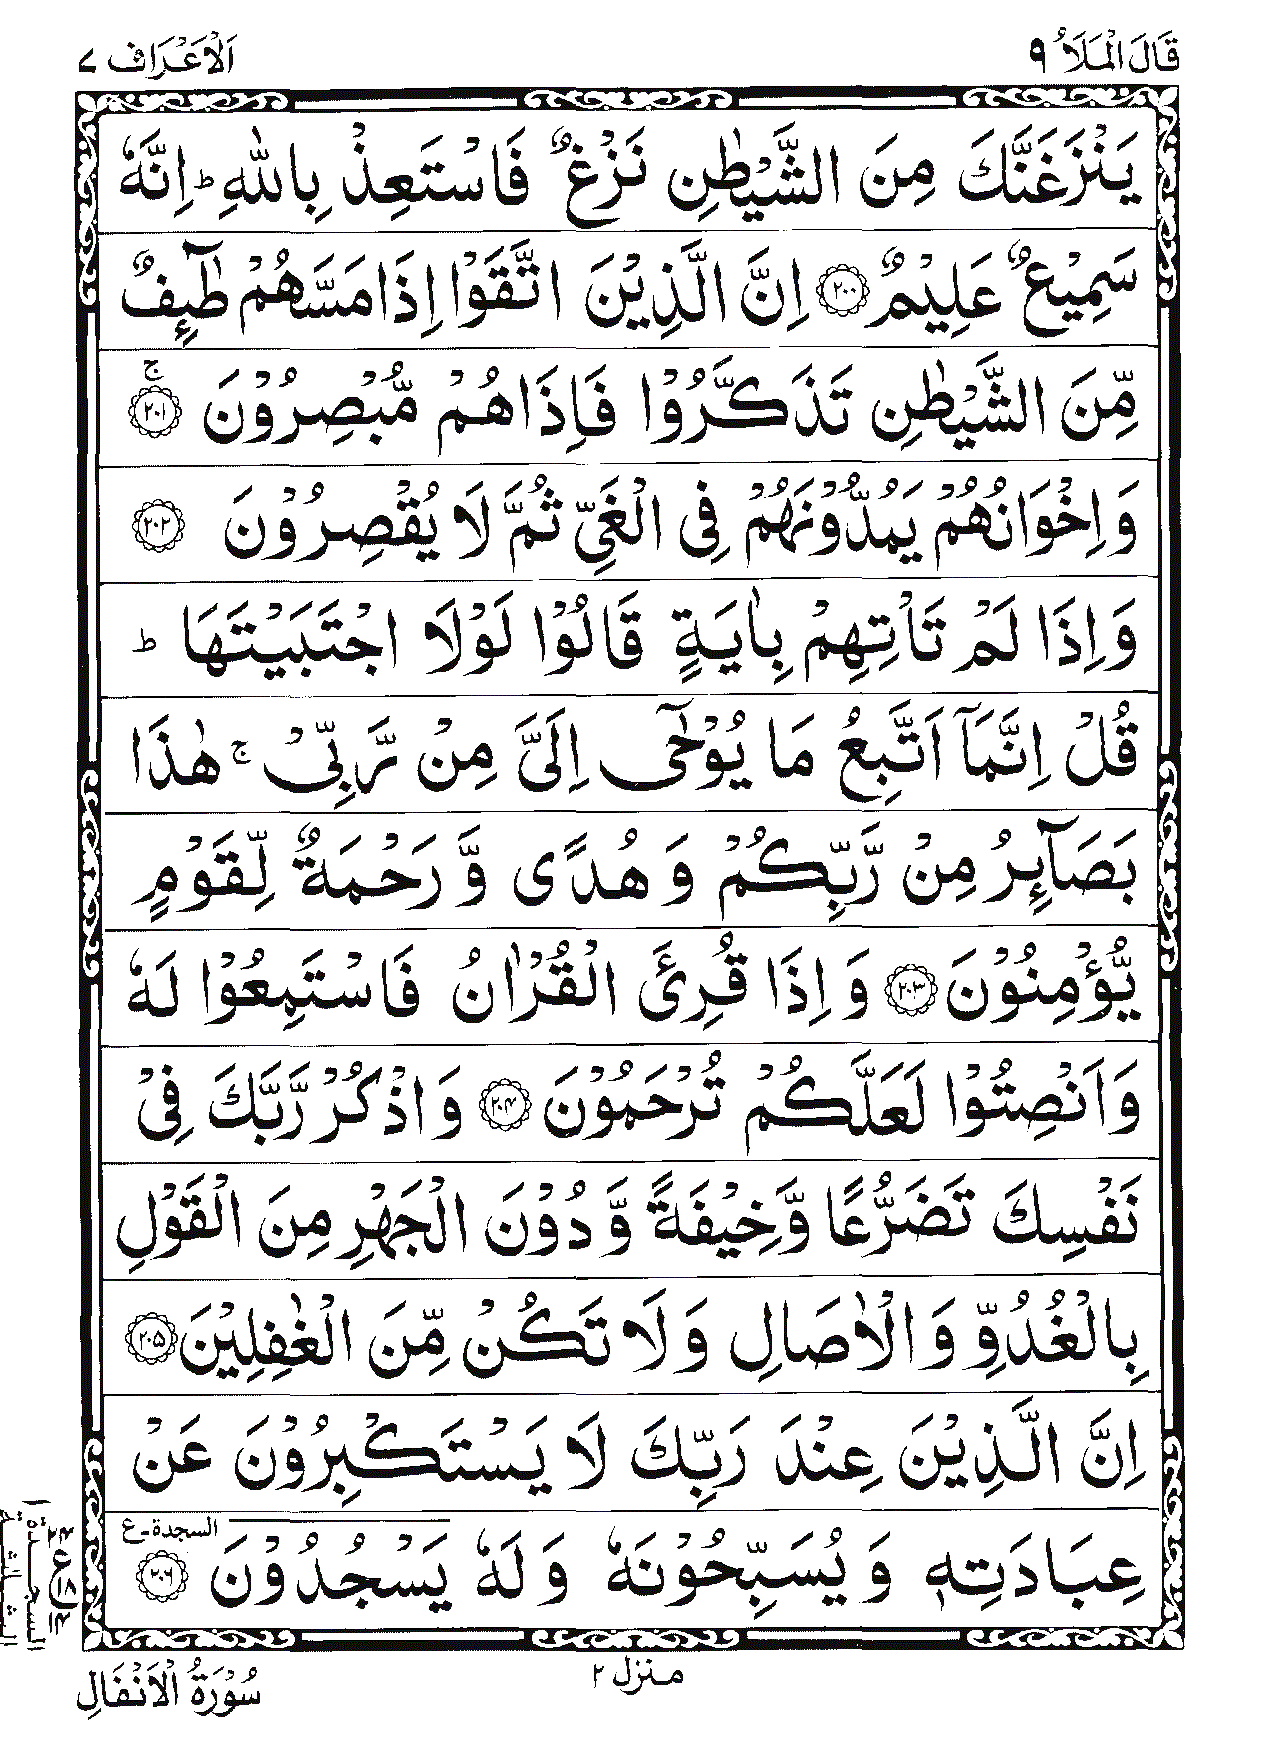 قَالَ الْمَلَاُ ٩
اَلْاَعْرَاف ٧
يَنْزَغَنَّكَ مِنَ الشَّيْطٰنِ نَزْغٌ فَاسْتَعِذْ بِاللّٰهِ ؕ اِنَّهٗ
سَمِيْعٌ عَلِيْمٌ ﴿۲۰۰﴾ اِنَّ الَّذِيْنَ اتَّقَوْا اِذَا مَسَّهُمْ طٰٓئِفٌ
مِّنَ الشَّيْطٰنِ تَذَكَّرُوْا فَاِذَا هُمْ مُّبْصِرُوْنَ ﴿۲۰۱﴾ ۚ
وَاِخْوَانُهُمْ يَمُدُّوْنَهُمْ فِى الْغَىِّ ثُمَّ لَا يُقْصِرُوْنَ ﴿۲۰۲﴾
وَاِذَا لَمْ تَاْتِهِمْ بِاٰيَةٍ قَالُوْا لَوْلَا اجْتَبَيْتَهَا ؕ
قُلْ اِنَّمَاۤ اَتَّبِعُ مَا يُوْحٰٓى اِلَىَّ مِنْ رَّبِّىْ ۚ هٰذَا
بَصَآئِرُ مِنْ رَّبِّكُمْ وَهُدًى وَّرَحْمَةٌ لِّقَوْمٍ
يُّؤْمِنُوْنَ ﴿۲۰۳﴾ وَاِذَا قُرِئَ الْقُرْاٰنُ فَاسْتَمِعُوْا لَهٗ
وَاَنْصِتُوْا لَعَلَّكُمْ تُرْحَمُوْنَ ﴿۲۰۴﴾ وَاذْكُرْ رَّبَّكَ فِىْ
نَفْسِكَ تَضَرُّعًا وَّخِيْفَةً وَّدُوْنَ الْجَهْرِ مِنَ الْقَوْلِ
بِالْغُدُوِّ وَالْاٰصَالِ وَلَا تَكُنْ مِّنَ الْغٰفِلِيْنَ ﴿۲۰۵﴾
اِنَّ الَّذِيْنَ عِنْدَ رَبِّكَ لَا يَسْتَكْبِرُوْنَ عَنْ
عِبَادَتِهٖ وَيُسَبِّحُوْنَهٗ وَلَهٗ يَسْجُدُوْنَ ﴿۲۰۶﴾ السجدة ع
منزل ٢
سُوْرَةُ الْاَنْفَالِ